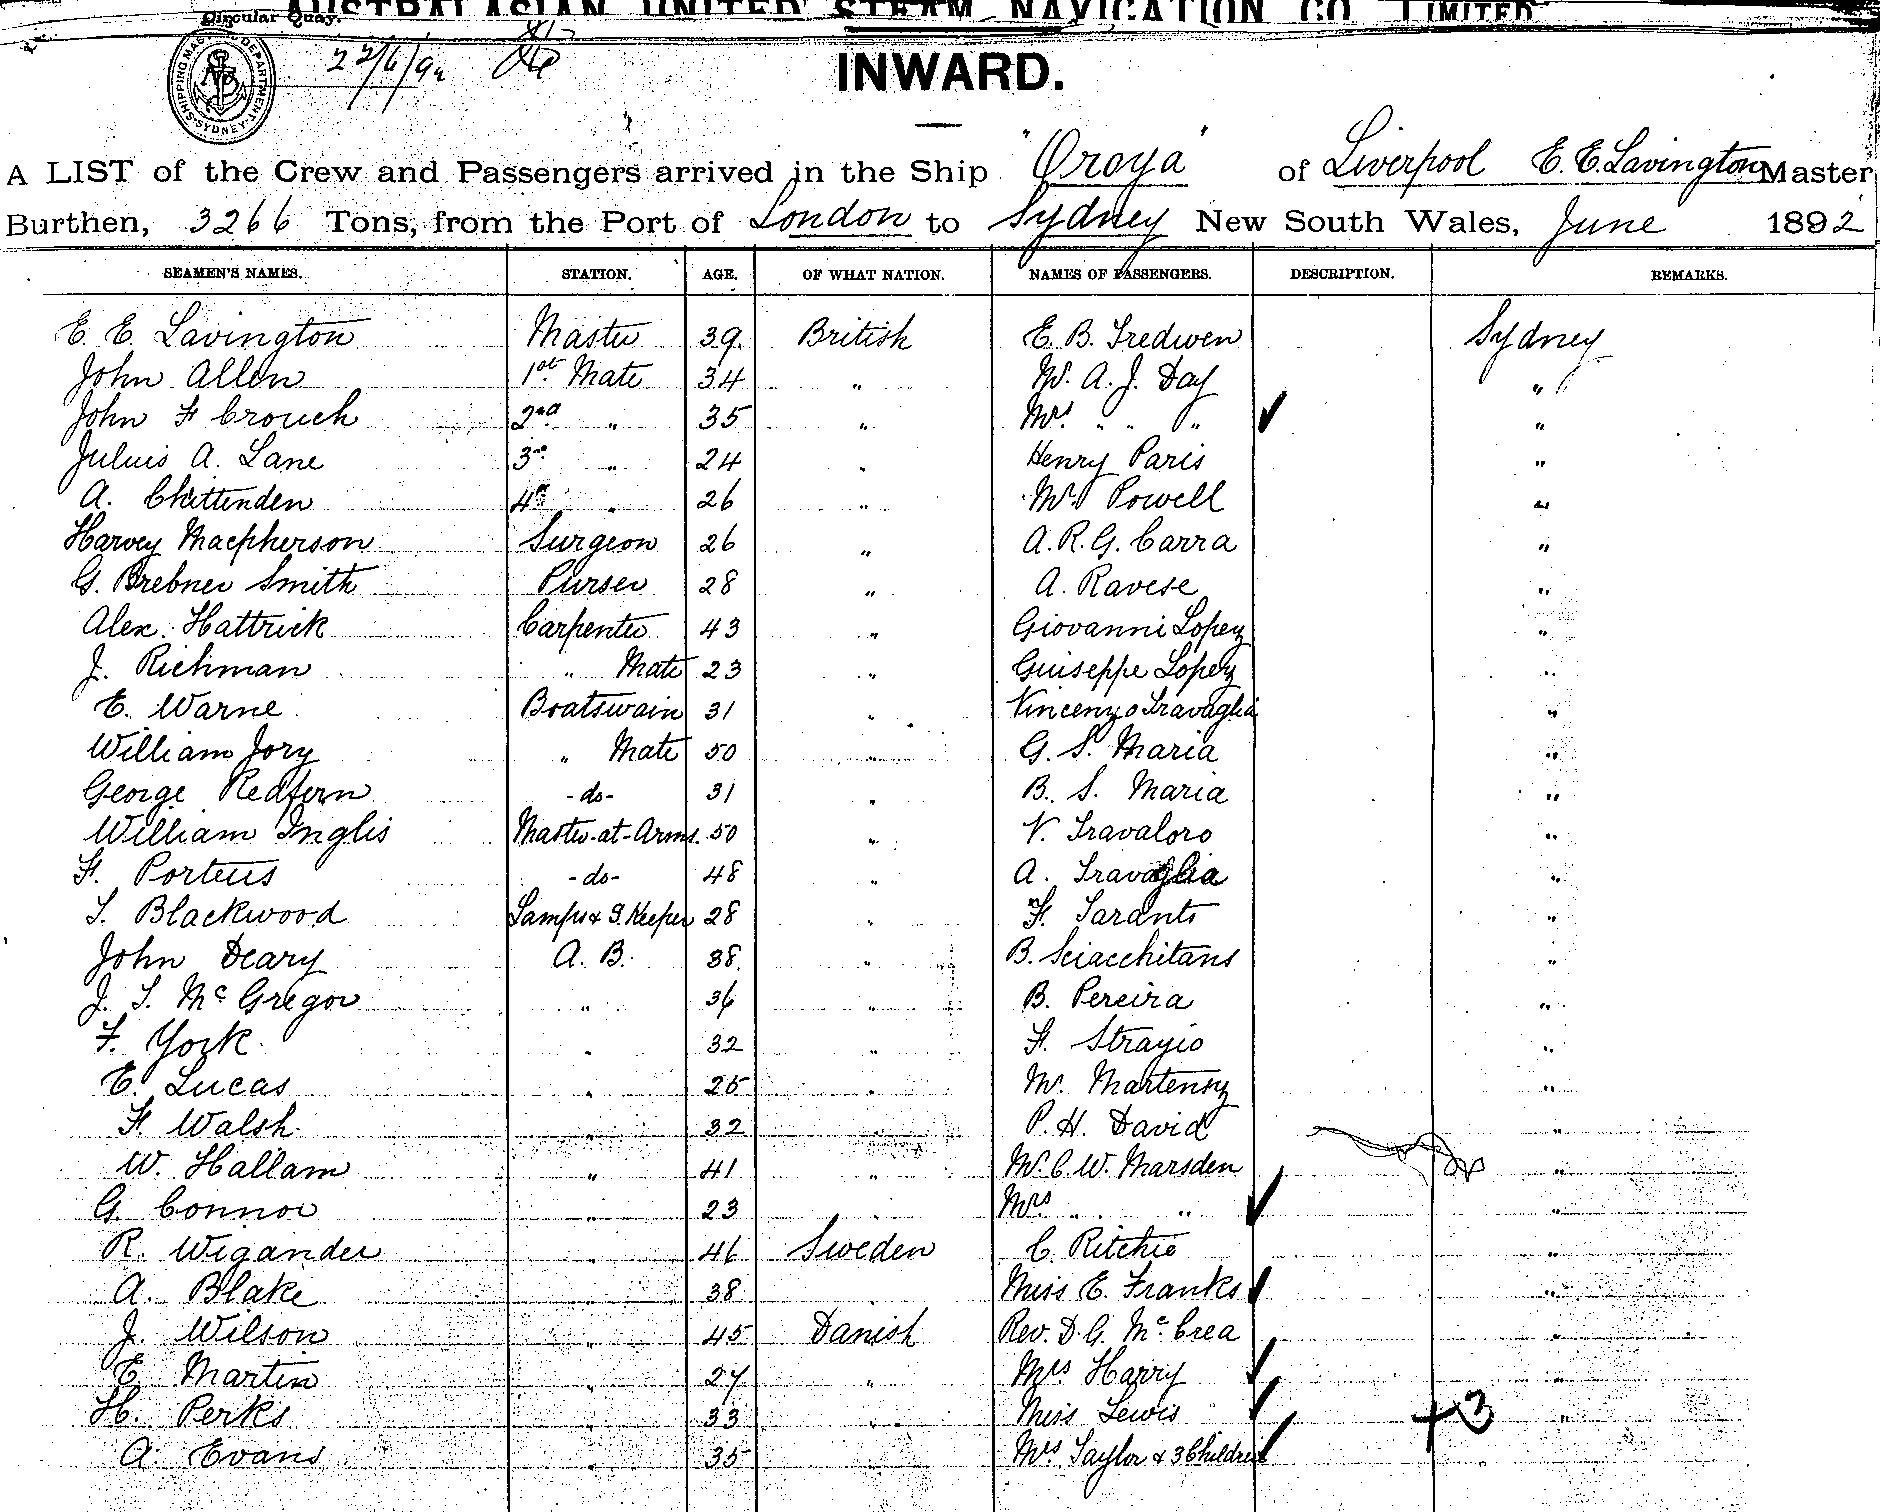 AUSTRALASIAN UNITED STEAM NAVIGATION CO. LIMITED
Circular Quay.
SHIPPING MASTER DEPARTMENT SYDNEY
22/6/92
INWARD.
A LIST of the Crew and Passengers arrived in the Ship "Oroya" of Liverpool E. E. Lavington Master
Burthen, 3266 Tons, from the Port of London to Sydney New South Wales, June 1892
SEAMEN'S NAMES. STATION. AGE. OF WHAT NATION. NAMES OF PASSENGERS. DESCRIPTION. REMARKS.
E. E. Lavington Master 39. British E. B. Tredwen Sydney
John Allen 1st Mate 34 " Mr. A. J. Day "
John F Crouch 2nd " 35 " Mrs " " " ✓ "
Juluis A. Lane 3rd " 24 " Henry Paris "
A. Chittenden 4th " 26 " Mr. Powell "
Harvey Macpherson Surgeon 26 " A. R. G. Carra "
G. Brebner Smith Purser 28 " A. Ravese "
Alex. Hattrick Carpenter 43 " Giovanni Lopez "
J. Richman " Mate 23 " Guiseppe Lopez "
E. Warne Boatswain 31 " Vincenzo Travaglia "
William Jory " Mate 50 " G. S. Maria "
George Redfern -do- 31 " B. S. Maria "
William Inglis Master-at-Arms. 50 " V. Travaloro "
F. Porteus -do- 48 " A. Travaglia "
T. Blackwood Lamps & S. Keeper 28 " F. Taranto "
John Deary A. B. 38. " B. Sciacchitans "
J. T. McGregor " 36 " B. Pereira "
F. York " 32 " F. Strazio "
E. Lucas " 25 " M. Martensz "
F. Walsh " 32 " P. H. David "
W. Hallam " 41 " Mr. C. W. Marsden "
G. Connor " 23 " Mrs " " ✓ "
R. Wigander " 46 Sweden C. Ritchie "
A. Blake " 38 " Miss E. Franks ✓ "
J. Wilson " 45 Danish Rev. D. G. McCrea "
E. Martin " 27 " Mrs Harry ✓ "
H. Perks " 33 " Miss Lewis ✓ +3 "
A. Evans " 35 " Mrs Taylor & 3 Children ✓